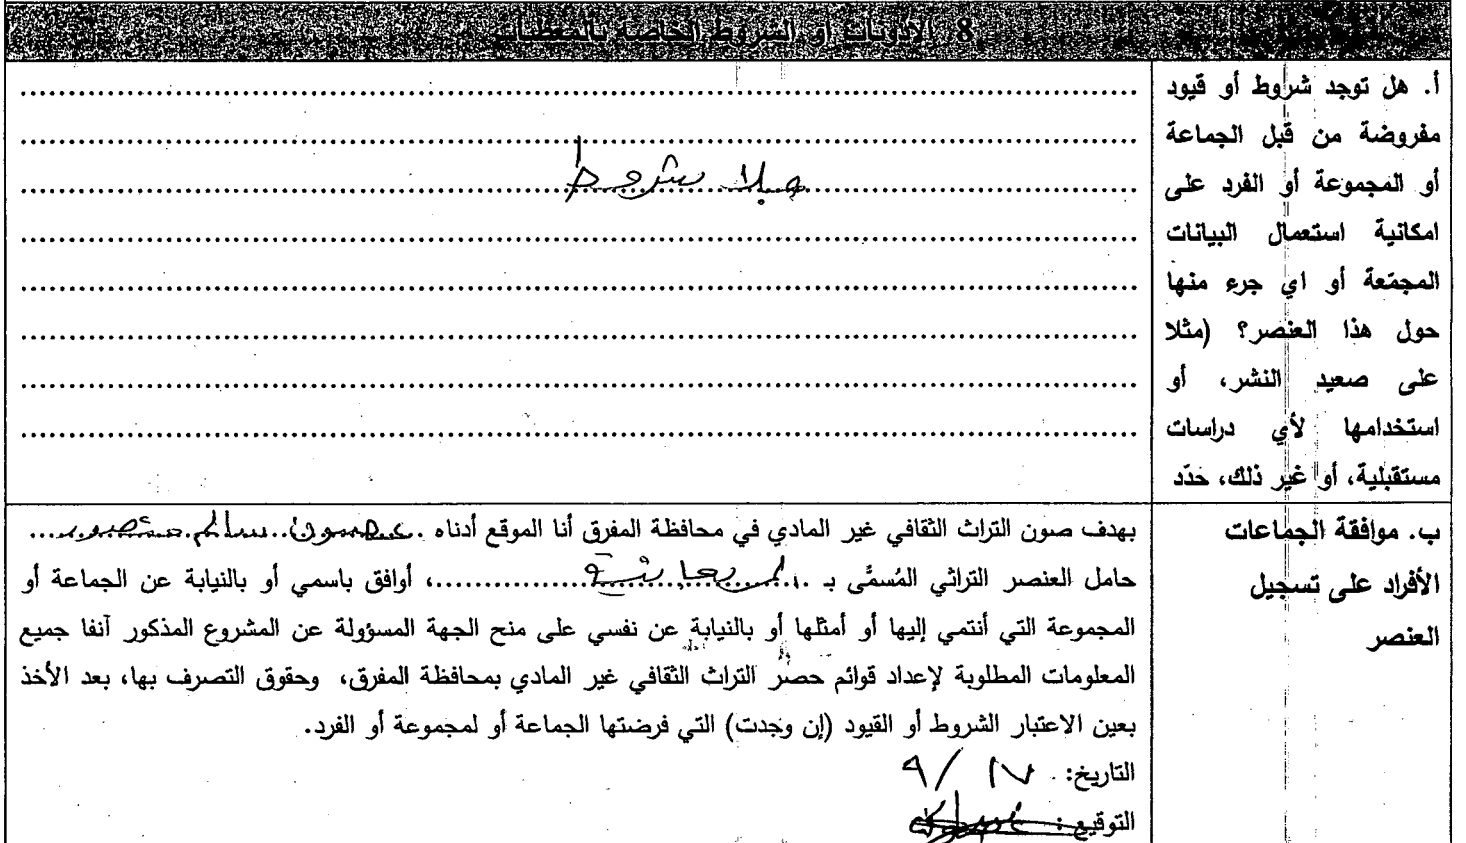 8. الاذونات أو الشروط الخاصة بالمعطيات
أ. هل توجد شروط أو قيود
مفروضة من قبل الجماعة
أو المجموعة أو الفرد على
امكانية استعمال البيانات
المجتعة أو اي جرء منها
حول هذا العنصر؟ (مثلا
على صعيد النشر، أو
استخدامها لأي دراسات
مستقبلية، أو غير ذلك، حدّد
بلا شروط
ب. موافقة الجماعات
الأفراد على تسجيل
العنصر
بهدف صون التراث الثقافي غير المادي في محافظة المفرق أنا الموقع أدناه سالم
حامل العنصر التراثي المُسمَّى بـ ، أوافق باسمي أو بالنيابة عن الجماعة أو
المجموعة التي أنتمي إليها أو أمثلها أو بالنيابة عن نفسي على منح الجهة المسؤولة عن المشروع المذكور آنفا جميع
المعلومات المطلوبة لإعداد قوائم حصر التراث الثقافي غير المادي بمحافظة المفرق، وحقوق التصرف بها، بعد الأخذ
بعين الاعتبار الشروط أو القيود (إن وجدت) التي فرضتها الجماعة أو لمجموعة أو الفرد.
التاريخ: ١٧ / ٩
التوقيع: